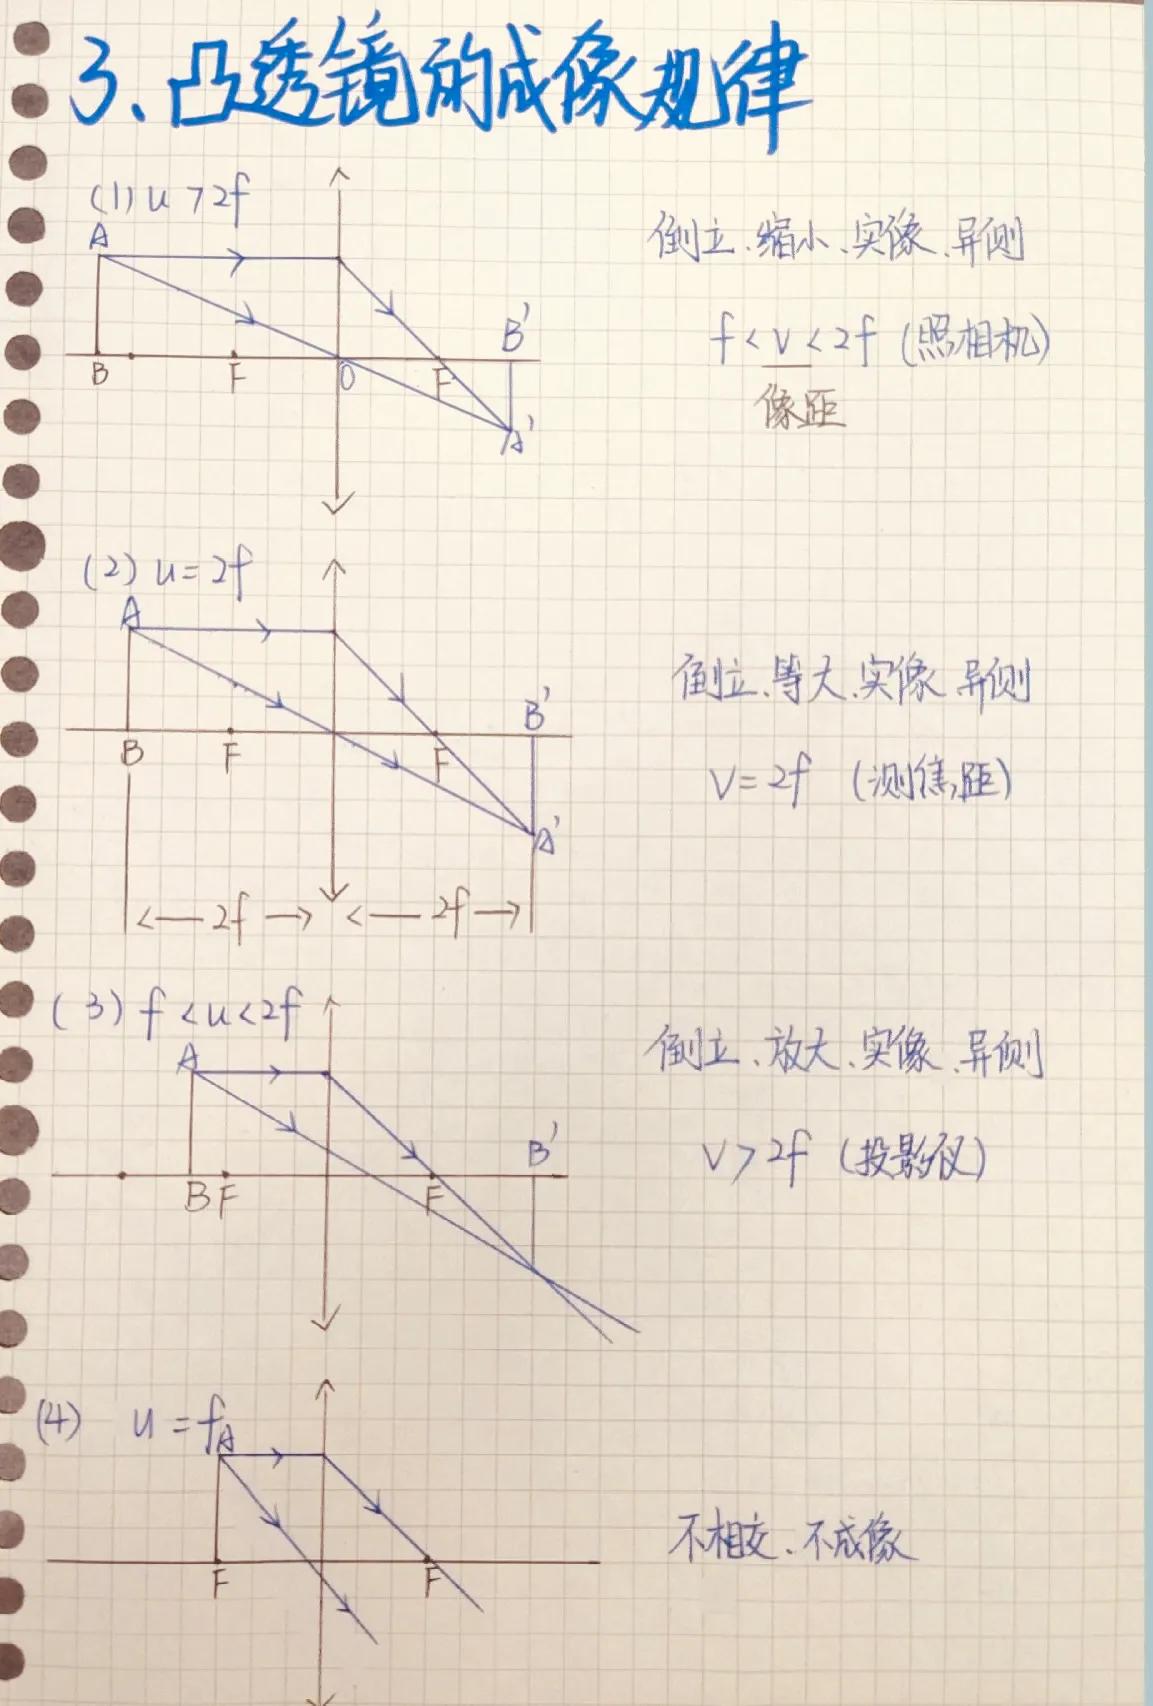 3、凸透镜的成像规律
(1) u >2f
倒立、缩小、实像、异侧
A
f < v < 2f (照相机)
像距
B'
B F O F
A'
(2) u = 2f
A
倒立、等大、实像、异侧
B'
B F F
v = 2f (测焦距)
A'
2f 2f
(3) f < u < 2f
倒立、放大、实像、异侧
A
B'
v > 2f (投影仪)
B F F
(4) u = f
A
不相交、不成像
F F